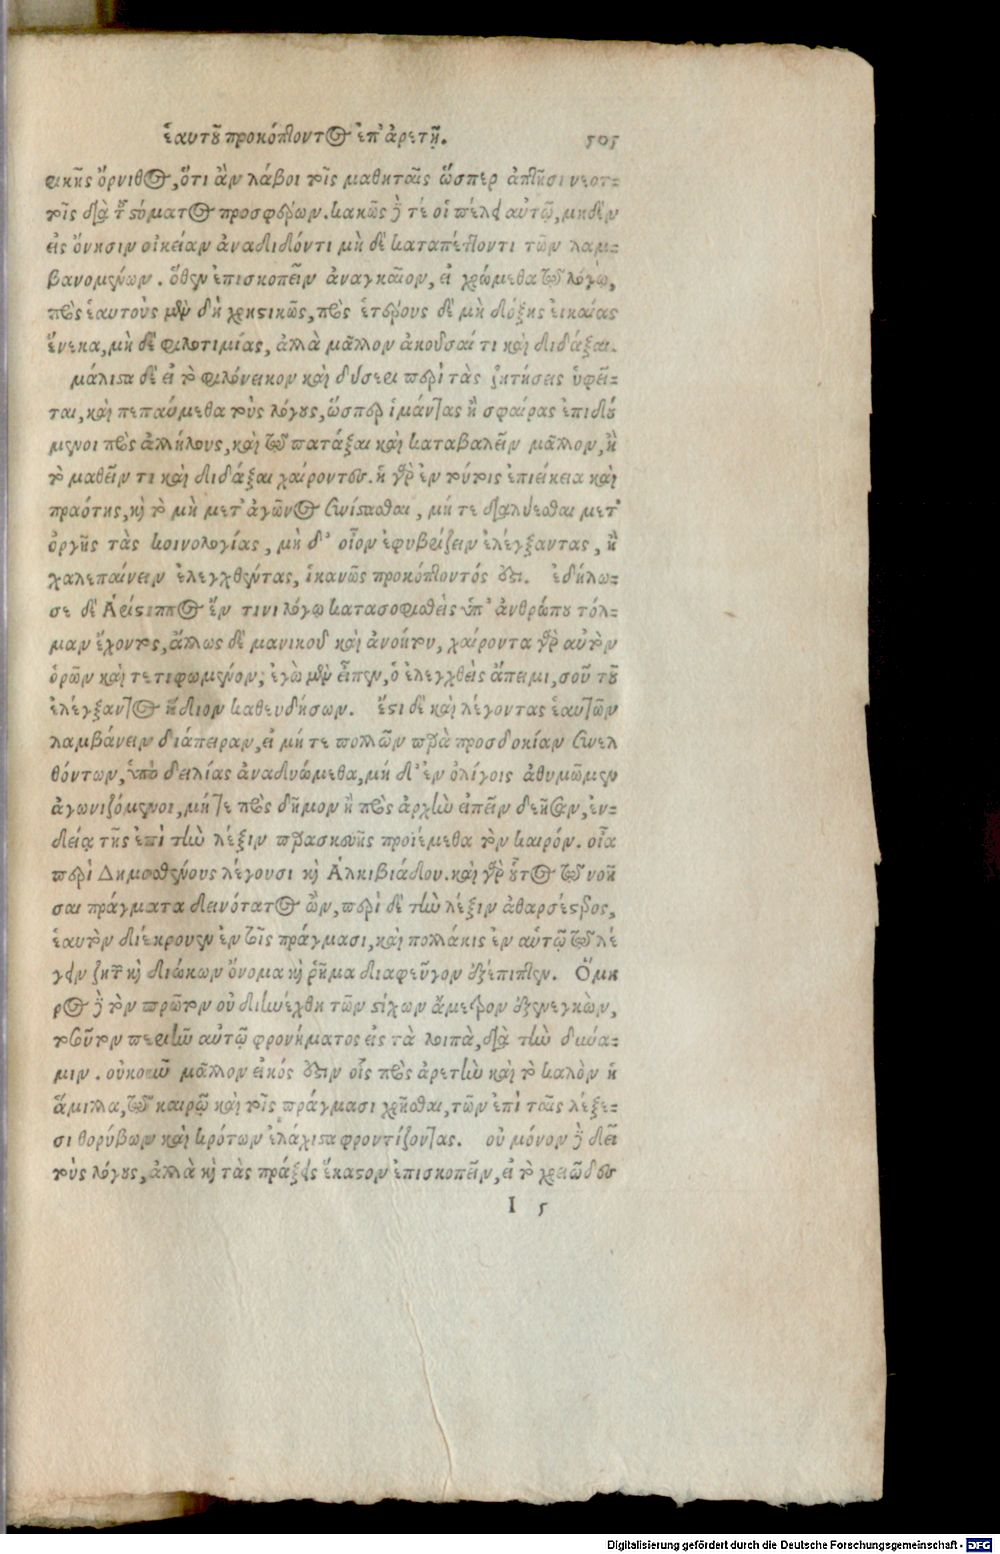 ἑαυτοῦ προκόπτοντος ἐπ' ἀρετῇ. 505
ρικῆς ὄρνιθος, ὅτι ἂν λάβοι τοῖς μαθηταῖς ὥσπερ ἀπτῆσι νεοτ-
τοῖς διὰ τοῦ στόματος προσφέρων. κακῶς δέ τέ οἱ πέλει αὐτῷ, μηδὲν
εἰς ὄνησιν οἰκείαν ἀναδιδόντι μὴ δὲ καταπέττοντι τῶν λαμ-
βανομένων. ὅθεν ἐπισκοπεῖν ἀναγκαῖον, εἰ χρώμεθα τῷ λόγῳ,
πρὸς ἑαυτοὺς μὲν δὴ χρηστικῶς, πρὸς ἑτέρους δὲ μὴ δόξης εἰκαίας
ἕνεκα, μὴ δὲ φιλοτιμίας, ἀλλὰ μᾶλλον ἀκοῦσαί τι καὶ διδάξαι.
μάλιστα δὲ εἰ τὸ φιλόνεικον καὶ δύσερι περὶ τὰς ζητήσεις ὑφεῖ-
ται, καὶ πεπαύμεθα τοὺς λόγους, ὥσπερ ἱμάντας ἢ σφαίρας ἐπιδού
μενοι πρὸς ἀλλήλους, καὶ τῷ πατάξαι καὶ καταβαλεῖν μᾶλλον, ἢ
τὸ μαθεῖν τι καὶ διδάξαι χαίροντες. ἡ γὰρ ἐν τούτοις ἐπιείκεια καὶ
πραότης, καὶ τὸ μὴ μετ' ἀγῶνος συνίστασθαι, μή τε διαλύεσθαι μετ'
ὀργῆς τὰς κοινολογίας, μὴ δ' οἷον ἐφυβρίζειν ἐλέγξαντας, ἢ
χαλεπαίνειν ἐλεγχθέντας, ἱκανῶς προκόπτοντός ἐστι. ἐδήλω-
σε δὲ Ἀρίστιππος ἔν τινι λόγῳ κατασοφισθεὶς ὑπ' ἀνθρώπου τόλ-
μαν ἔχοντος, ἄλλως δὲ μανικοῦ καὶ ἀνοήτου, χαίροντα γὰρ αὐτὸν
ὁρῶν καὶ τετιφωμένον; ἐγὼ μὲν εἶπεν, ὁ ἐλεγχθεὶς ἄπειμι, σοῦ τοῦ
ἐλέγξαντος ἥδιον καθευδήσων. ἔστι δὲ καὶ λέγοντας ἑαυτῶν
λαμβάνειν διάπειραν, εἰ μή τε πολλῶν παρὰ προσδοκίαν συνελ
θόντων, ὑπὸ δειλίας ἀναδυώμεθα, μὴ δ' ἐν ὀλίγοις ἀθυμῶμεν
ἀγωνιζόμενοι, μήτε πρὸς δῆμον ἢ πρὸς ἀρχὴν εἰπεῖν δεῆσαν, ἐν-
δείᾳ τῆς ἐπὶ τὴν λέξιν παρασκευῆς προϊέμεθα τὸν καιρόν. οἷα
περὶ Δημοσθένους λέγουσι καὶ Ἀλκιβιάδου. καὶ γὰρ οὗτος τῷ νοῆ
σαι πράγματα δεινότατος ὤν, περὶ δὲ τὴν λέξιν ἀθαρσέστερος,
ἑαυτὸν διέκρουεν ἐν τοῖς πράγμασι, καὶ πολλάκις ἐν αὐτῷ τῷ λέ
γειν ζητῶν καὶ διώκων ὄνομα καὶ ῥῆμα διαφεῦγον ἐξέπιπτεν. Ὅμη
ρος δὲ τὸν πρῶτον οὐ διηνέχθη τῶν στίχων ἄμετρον ἐξενεγκὼν,
τοσοῦτον περιῆν αὐτῷ φρονήματος εἰς τὰ λοιπὰ, διὰ τὴν δύνα-
μιν. οὐκοῦν μᾶλλον εἰκός ἐστιν οἷς πρὸς ἀρετὴν καὶ τὸ καλὸν ἡ
ἅμιλλα, τῷ καιρῷ καὶ τοῖς πράγμασι χρῆσθαι, τῶν ἐπὶ ταῖς λέξε-
σι θορύβων καὶ κρότων ἐλάχιστα φροντίζοντας. οὐ μόνον δὲ δεῖ
τοὺς λόγους, ἀλλὰ καὶ τὰς πράξεις ἕκαστον ἐπισκοπεῖν, εἰ τὸ χρειῶδες
I 5
Digitalisierung gefördert durch die Deutsche Forschungsgemeinschaft - DFG